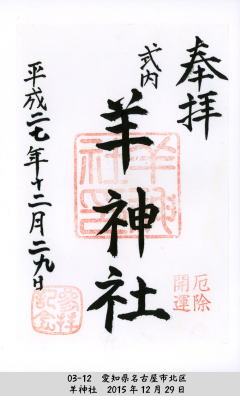 奉拝
式内
羊神社
平成二七年十二月二九日
羊神社印
厄除
開運
参拝
記念
03-12 愛知県名古屋市北区
羊神社 2015年12月29日